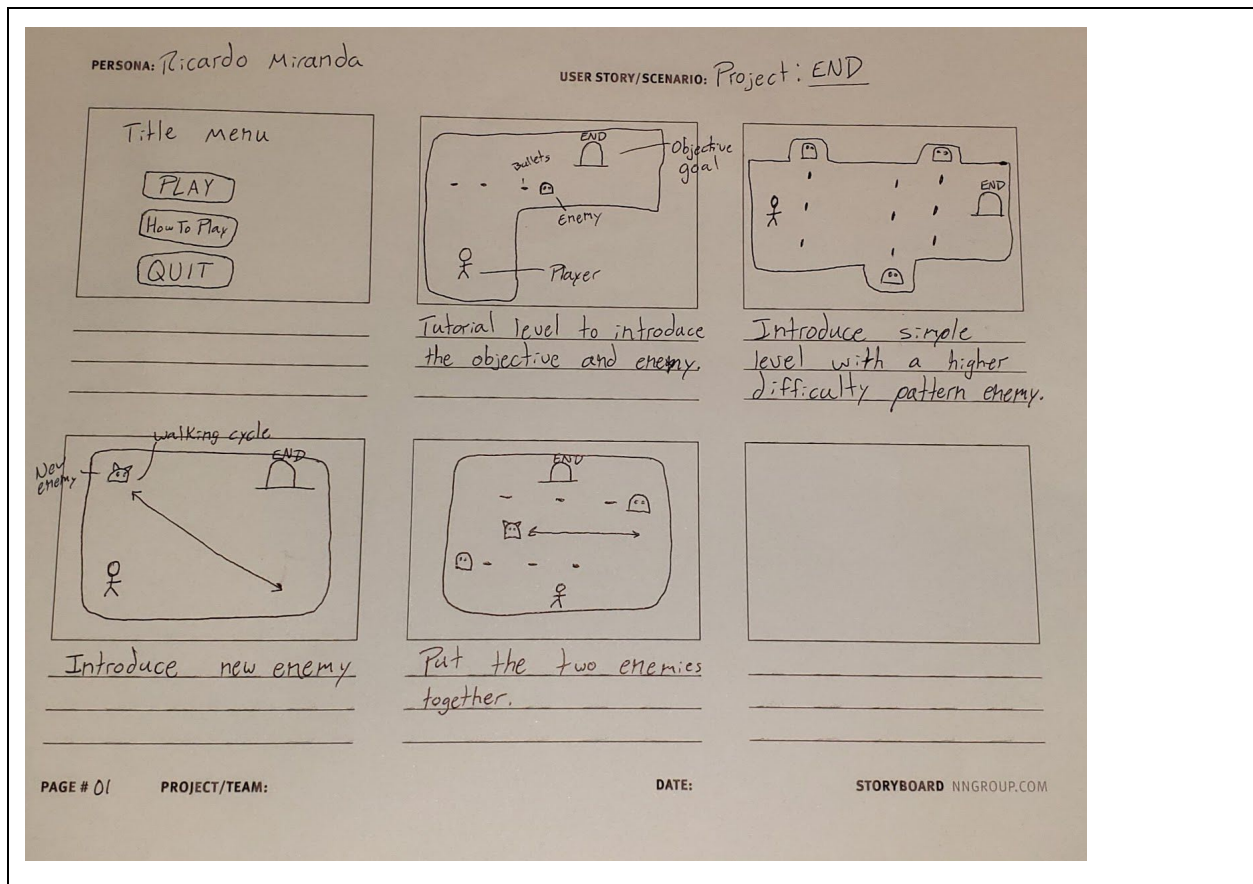 PERSONA: Ricardo Miranda
USER STORY/SCENARIO: Project: END
Title menu
PLAY
How To Play
QUIT
END
Objective
goal
Bullets
Enemy
Player
Tutorial level to introduce
the objective and enemy.
END
Introduce simple
level with a higher
difficulty pattern enemy.
walking cycle
New
enemy
END
Introduce new enemy
END
Put the two enemies
together.
PAGE # 01
PROJECT/TEAM:
DATE:
STORYBOARD NNGROUP.COM